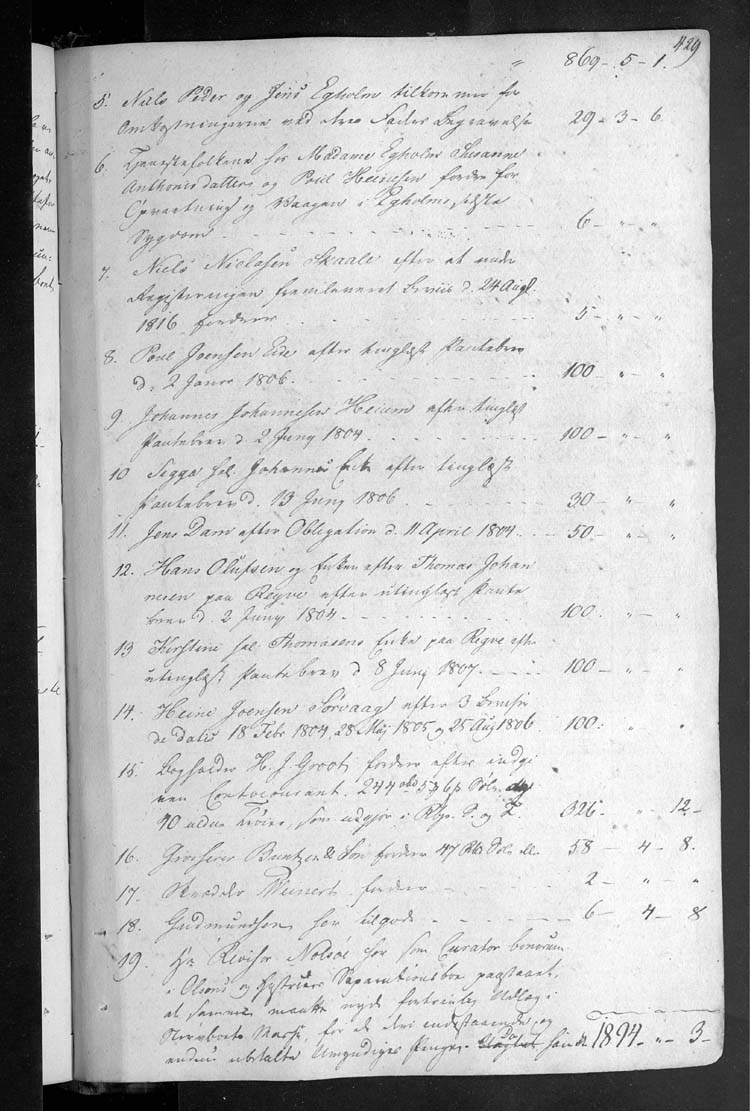 429
" 869 - 5 - 1.
5. Niels Peder og Jens Egholm tilkommer for
Omkostningerne ved deres Faders Begravelse 29 - 3 - 6
6. Tjenestefolkene hos Madame Egholm Susanne
Anthonisdatter og Poul Heinesen fordre for
Opvartning og Vaagen i Egholms sidste
Sygdom 6 - " - "
7. Niels Niclasen Skaale efter et under
Registeringen fremleveret Beviis d. 24 Augl.
1816 fordrer 5 - " - "
8. Poul Joensen Eide efter tinglæst Pantebrev
d. 2 Janr 1806. 100 - " - "
9. Johannes Johannesen Heium efter tinglæst
Pantebrev d 2 Juny 1804. 100 - " - "
10 Sigga sal. Johannes Enke efter tinglæst
Pantebrev d. 13 Juny 1806 30 - " - "
11. Jens Dam efter Obligation d. 11 April 1804. 50 - " - "
12. Hans Olufsen og Enken efter Thomas Johan
nesen paa Reqve efter utinglæst Pante
brev d. 2 Juny 1804. 100. " - "
13 Kirstine sal. Thomasens Enke paa Reqve efter
utinglæst Pantebrev d 8 Junj 1807. 100 - " - "
14. Heine Joensen Sørvaag efter 3 Beviser
de datis 18 Febr 1804, 28 Maj 1805 og 25 Aug 1806. 100: " "
15. Bogholder H. J. Groot fordrer efter indgi
ven Contocourant. 244 rbd 5 # 6 s Sølv og
40 uldne Trøier, som udgjør i Rbp. S. og T. 326. " - 12 -
16. Grosserer Buntzen & Søn fordrer 47 Rb Sølv ell. 58 - 4 - 8.
17. Skrædder Weinert fordrer 2 - " - "
18. Gudmundsen har tilgode 6 - 4 - 8
19. Hr Revisor Nolsøe har som Curator bonorum
i Olsens og Hustrues Separationsboe paastaaet,
at samme maatte nyde fortrinlig Udlæg i
Stervboets Masse, for de deri indestaaende, og
endnu ubetalte Umyndiges Penge. 1894 - " - 3 -